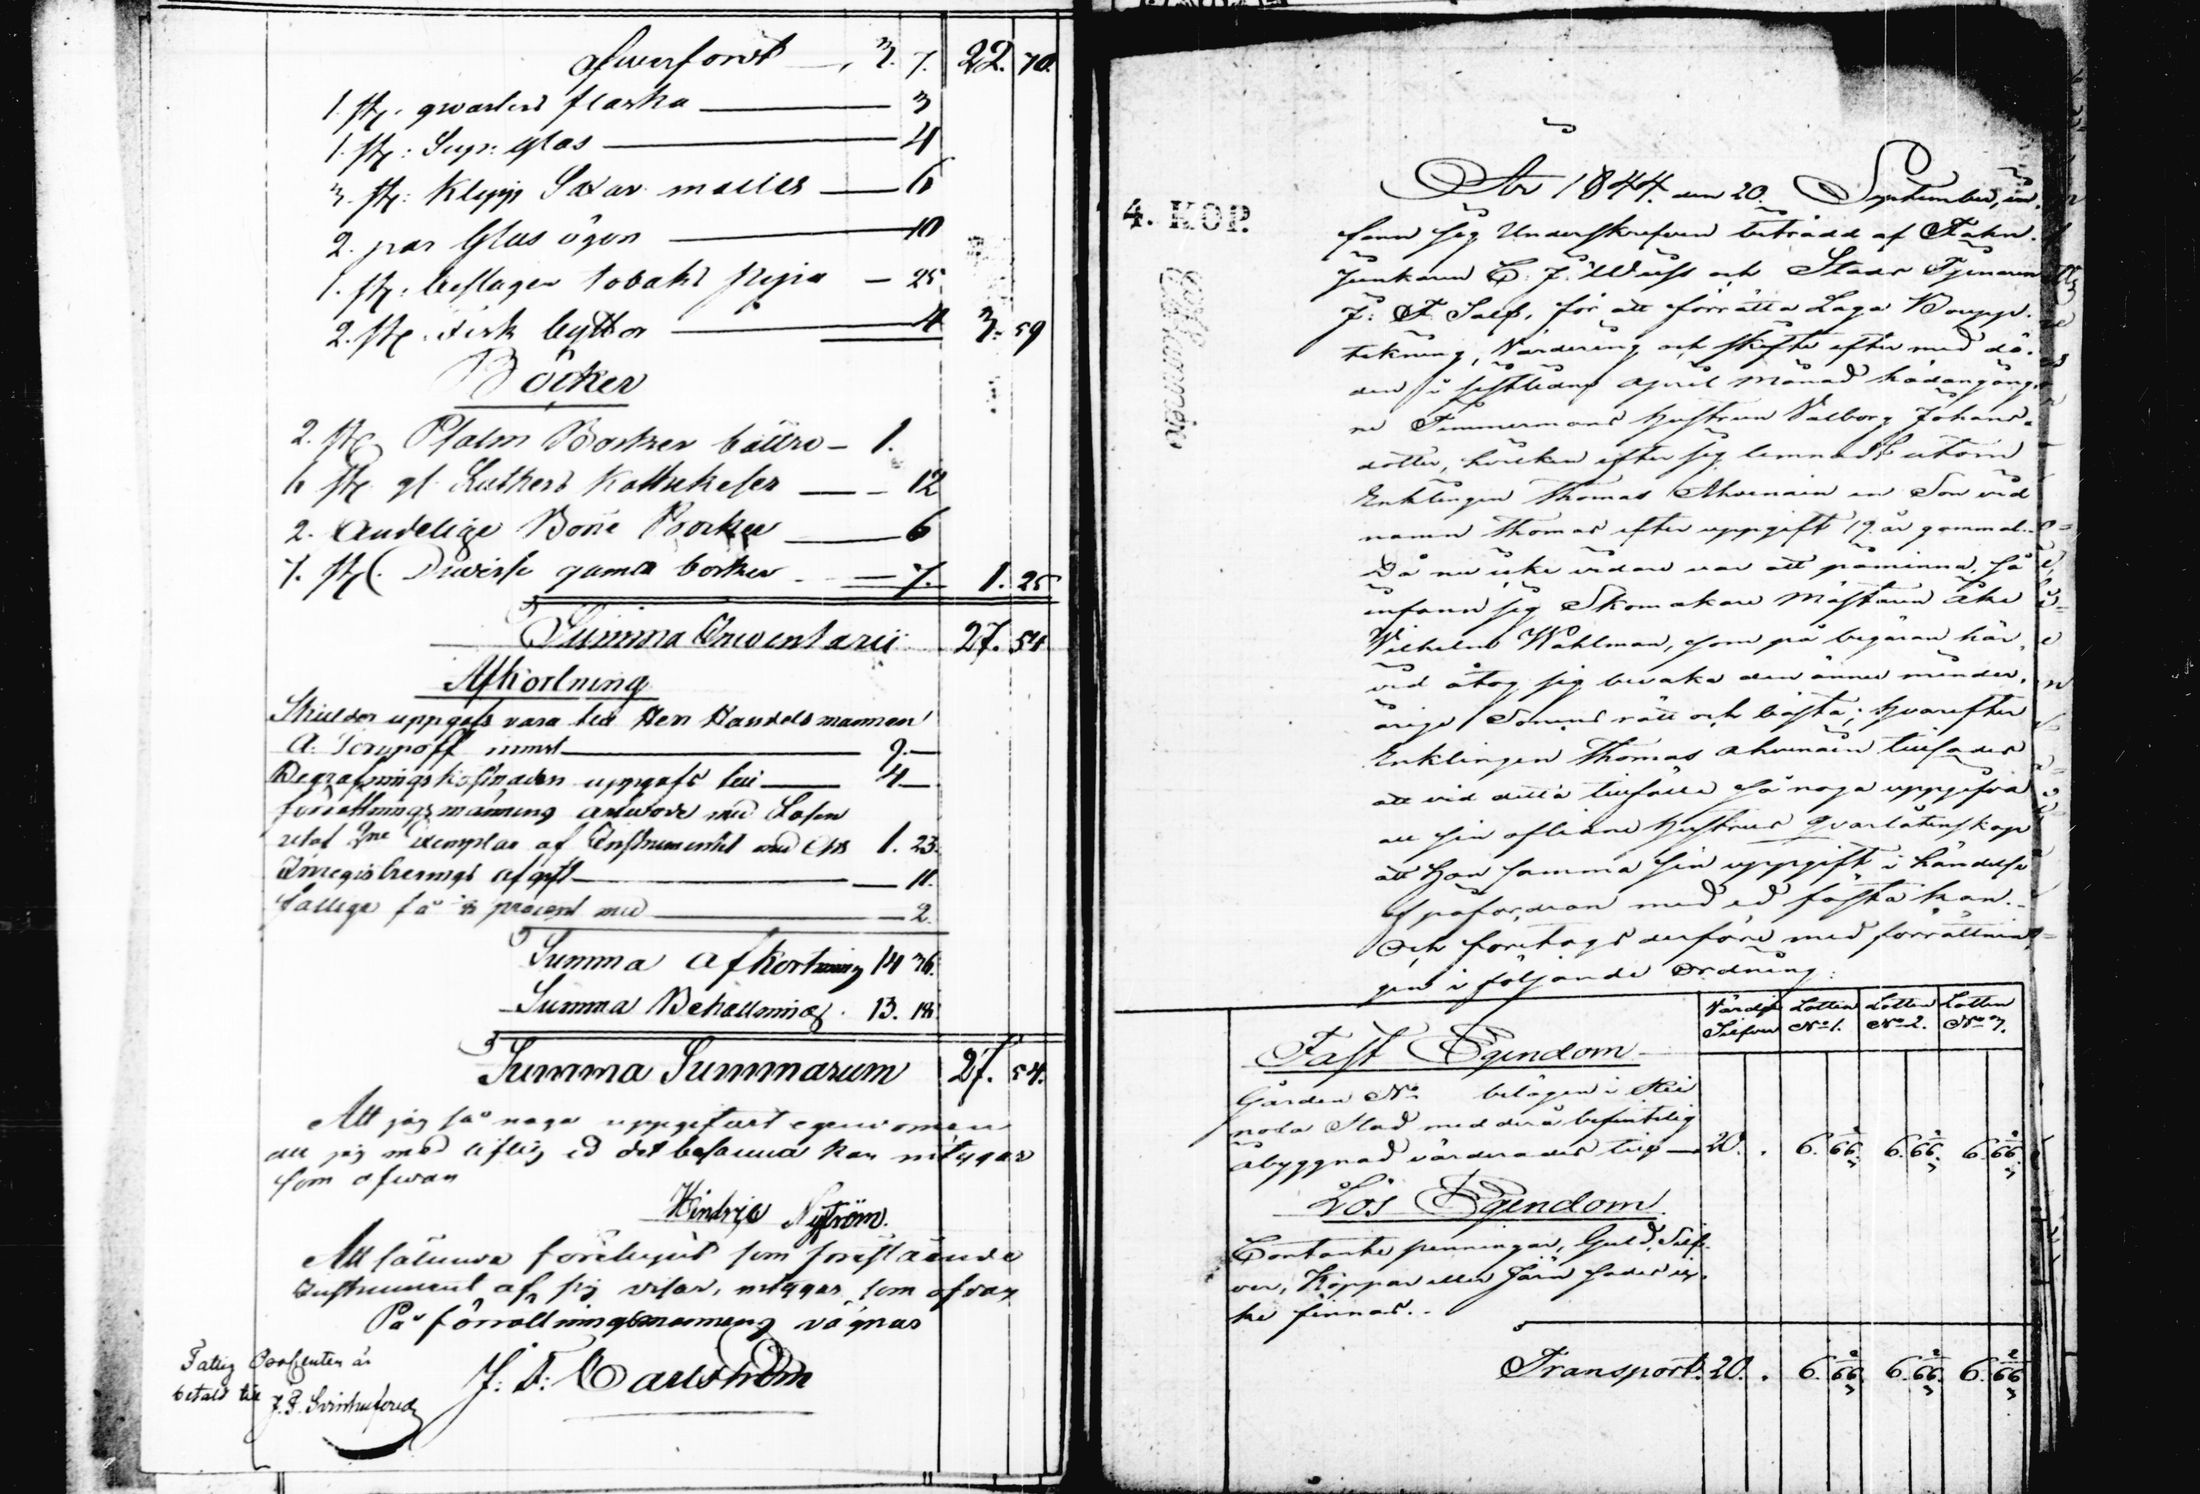 Öfverfördt 3. 7. 22. 70.
1. st. qvarters flaska 3
1. st. Sup. glas 4
3. st. Klipp Saxar 6
2. par Glas ögon 10
1. st. beslagen tobaks pipa 25
2. st. fisk byttor 4 3. 59
Böcker
2. st. Psalm Böcker bättre 1.
st. gl. Luthers Kattekeser 12
2. Andelige Böne Böcker 6
7. st. Diverse gamla böcker 7. 1. 25
Summa Inventarii 27. 54
Afkortning
Skulder uppgafs vara till Herr Handelsmannen
A. inmot 9.
Begrafningskostnaden uppgafs till 4
förrättningsmännens arfvode med Lösen
utaf 2ne Exemplar af Instrumentet med 1. 23.
Inregistrerings afgift 11.
Fattige procent med 2.
Summa afkortning 14 36
Summa Behållning. 13. 18
Summa Summarum 27. 54.
Att jag så noga uppgifvit egendomen
att jag med liflig ed det besanna kan intygas
som ofvan
Hindric Nyström.
Att sålunda förelupit som förestående
Instrument af sig visar, intygar som ofvan
På förrättningsmännens vägnar
J: F: Carlström
Fattig Procenten är
betald till
4. KOP.
År 1844. den 20. September, in-
fann sig Underskrefven biträdd af Fahn-
Junkaren C. J. och Stads Tjenaren
J: F. för att förrätta Laga Boupp-
tekning, Värdering och skifte efter med dö-
den i sistledne April Månad hädangång-
ne Timmermans hustrun Valborg Johans-
dotter, hvilken efter sig lemnadt utom
Enklingen Thomas Ahvenain en Son vid
namn Thomas efter uppgift 19 år gammal.
Då nu icke vidare var att påminna, så
infann sig Skomakare Mästaren Åke
Wilhelm Wahlman, som på begäran här-
vid åtog sig bevaka den ännu minder-
årige Sonens rätt och bästa; hvarefter
Enklingen Thomas Ahvenain tillsades
att vid detta tillfälle så noga uppgifva
all sin aflidne hustrus qvarlåtenskap
att han samma sin uppgift i händelse
af påfordran med ed fästa kan.
Och företogs derföre med förrättnin-
gen i följande Ordning:
Värde i Silfver Lotten No 1. Lotten No 2. Lotten No 3.
Fast Egendom
Gården No belägen i
Stad med derå befintelig
åbyggnad värderades till 20. 6. 66 2/3 6. 66 2/3 6. 66 2/3
Lös Egendom
Contante penningar, Guld, Silf-
ver, Koppar eller Järn sades ic-
ke finnas.
Transport. 20. 6. 66 2/3 6. 66 2/3 6. 66 2/3